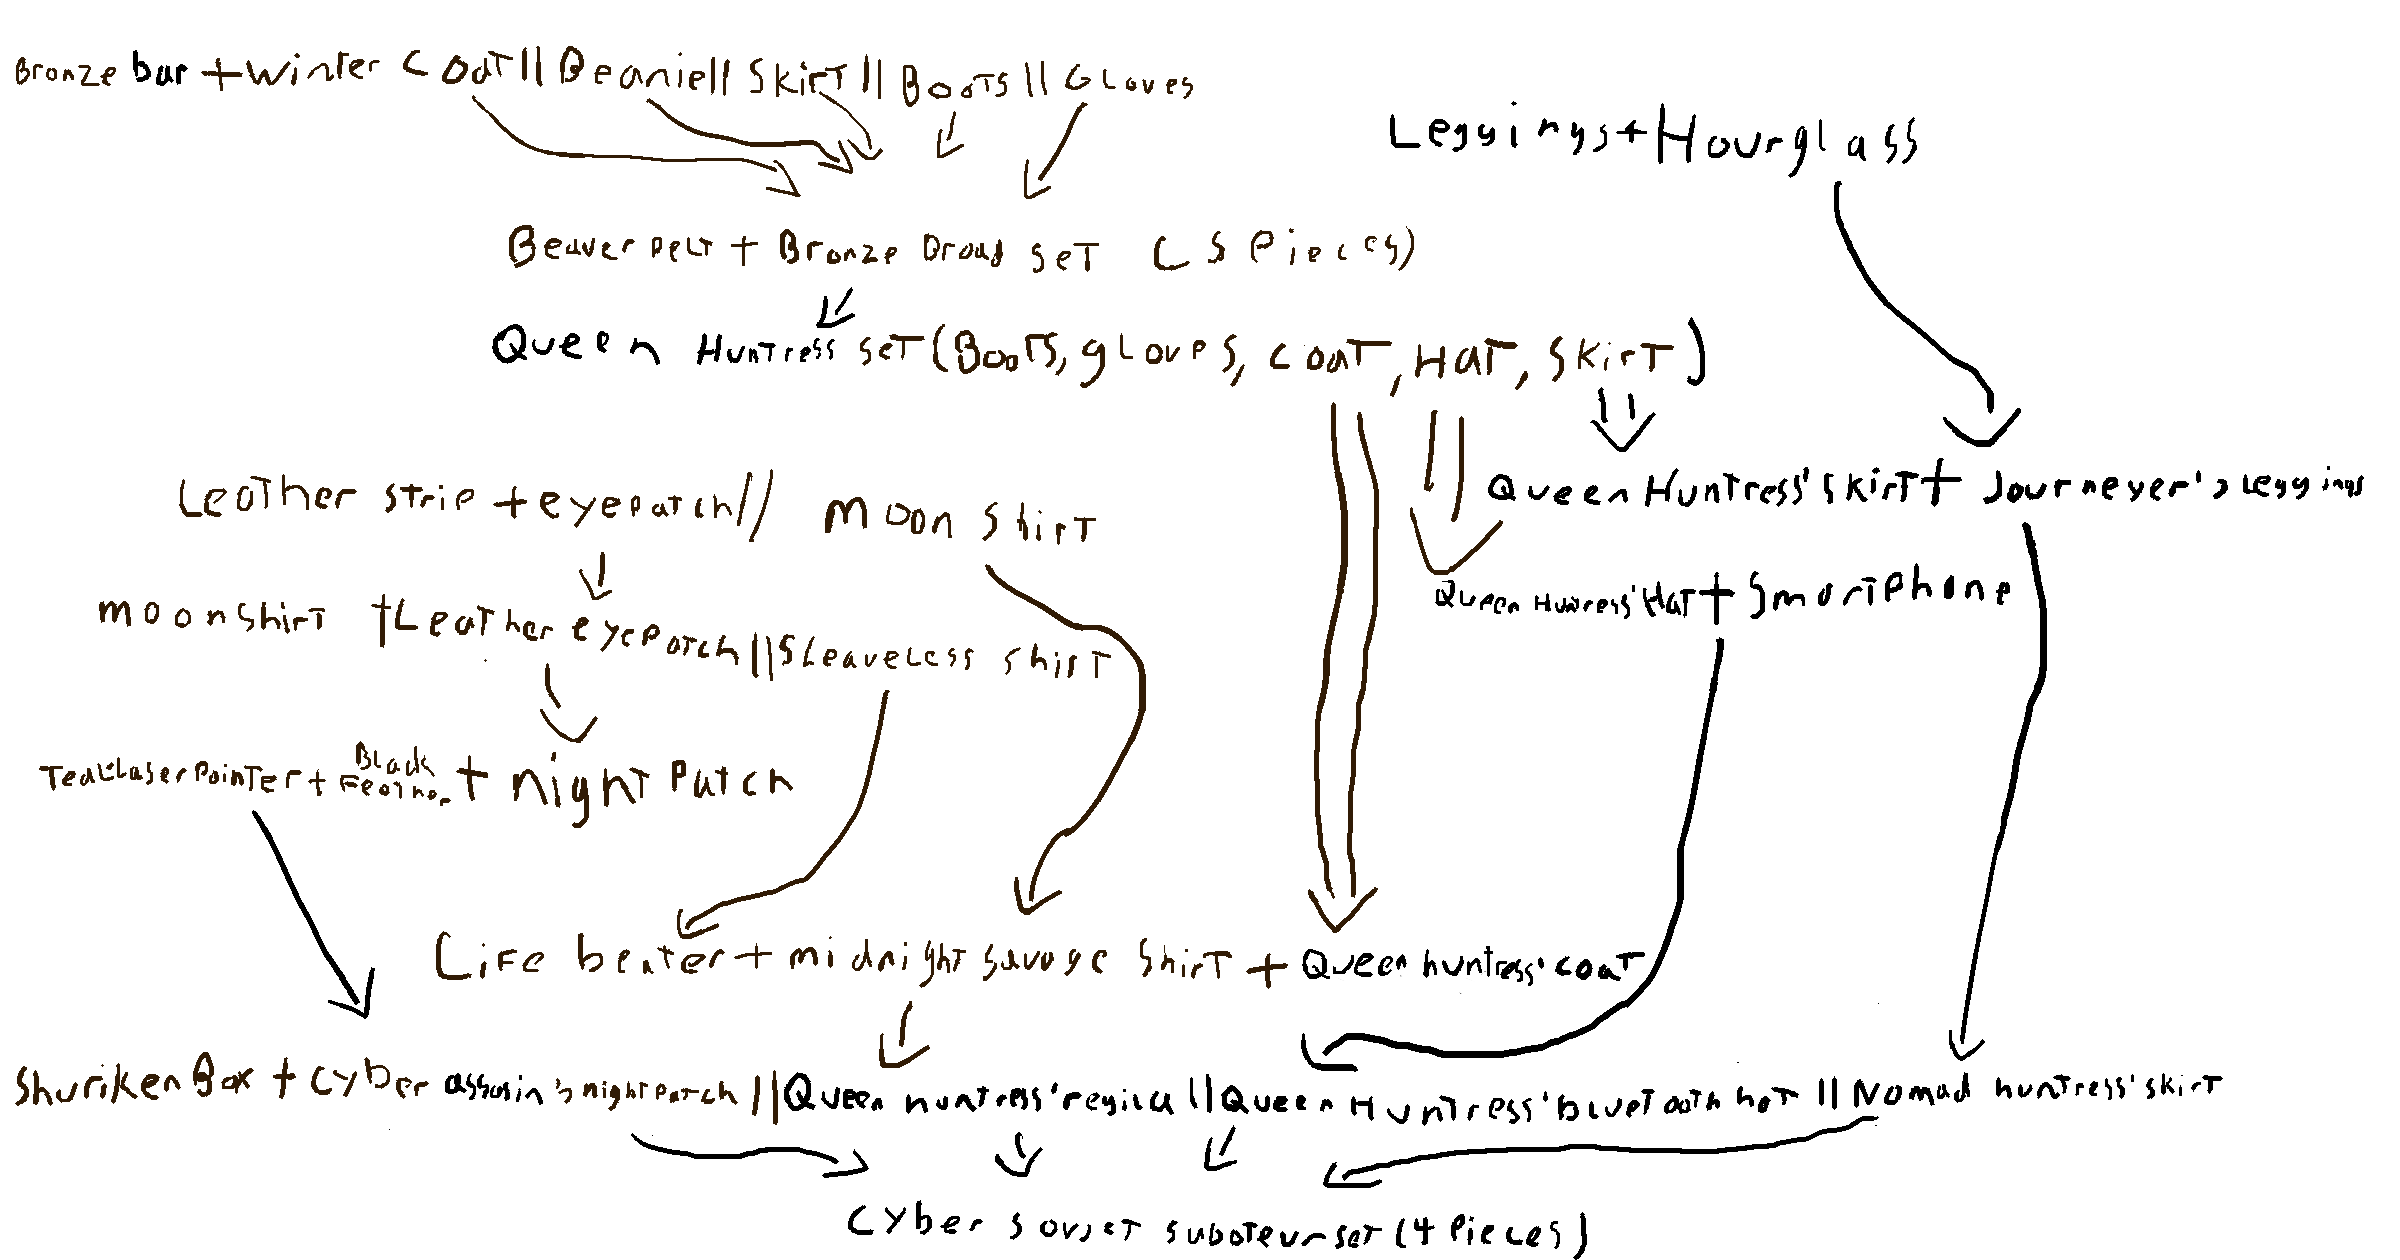 Bronze bar + winter coat || Beanie || skirt || Boots || Gloves
Leggings + Hourglass
Beaver pelt + Bronze Broad set (5 pieces)
Queen Huntress set (Boots, gloves, coat, Hat, skirt)
Leather strip + eyepatch // moon shirt
Queen Huntress' skirt + Journeyer's Leggings
moon shirt + Leather eyepatch || Sleaveless shirt
Queen Huntress' Hat + Smartphone
Teal Laser Pointer + Black Feather + night patch
Life beater + midnight savage shirt + Queen huntress' coat
Shuriken Box + cyber assasin's night patch || Queen huntress' regilia || Queen Huntress' bluetooth hat || Nomad huntress' skirt
cyber soviet saboteur set (4 pieces)